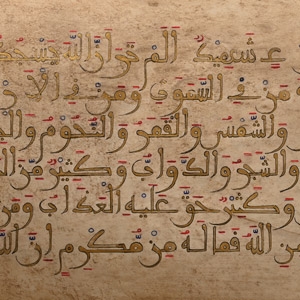 شهيد الم تر ان الله يسجد
من في السموت ومن في الا
والشمس والقمر والنجوم والج
والشجر والدواب وكثير من ا
وكثير حق عليه العذاب ومن
هن الله فما له من مكرم ان الله